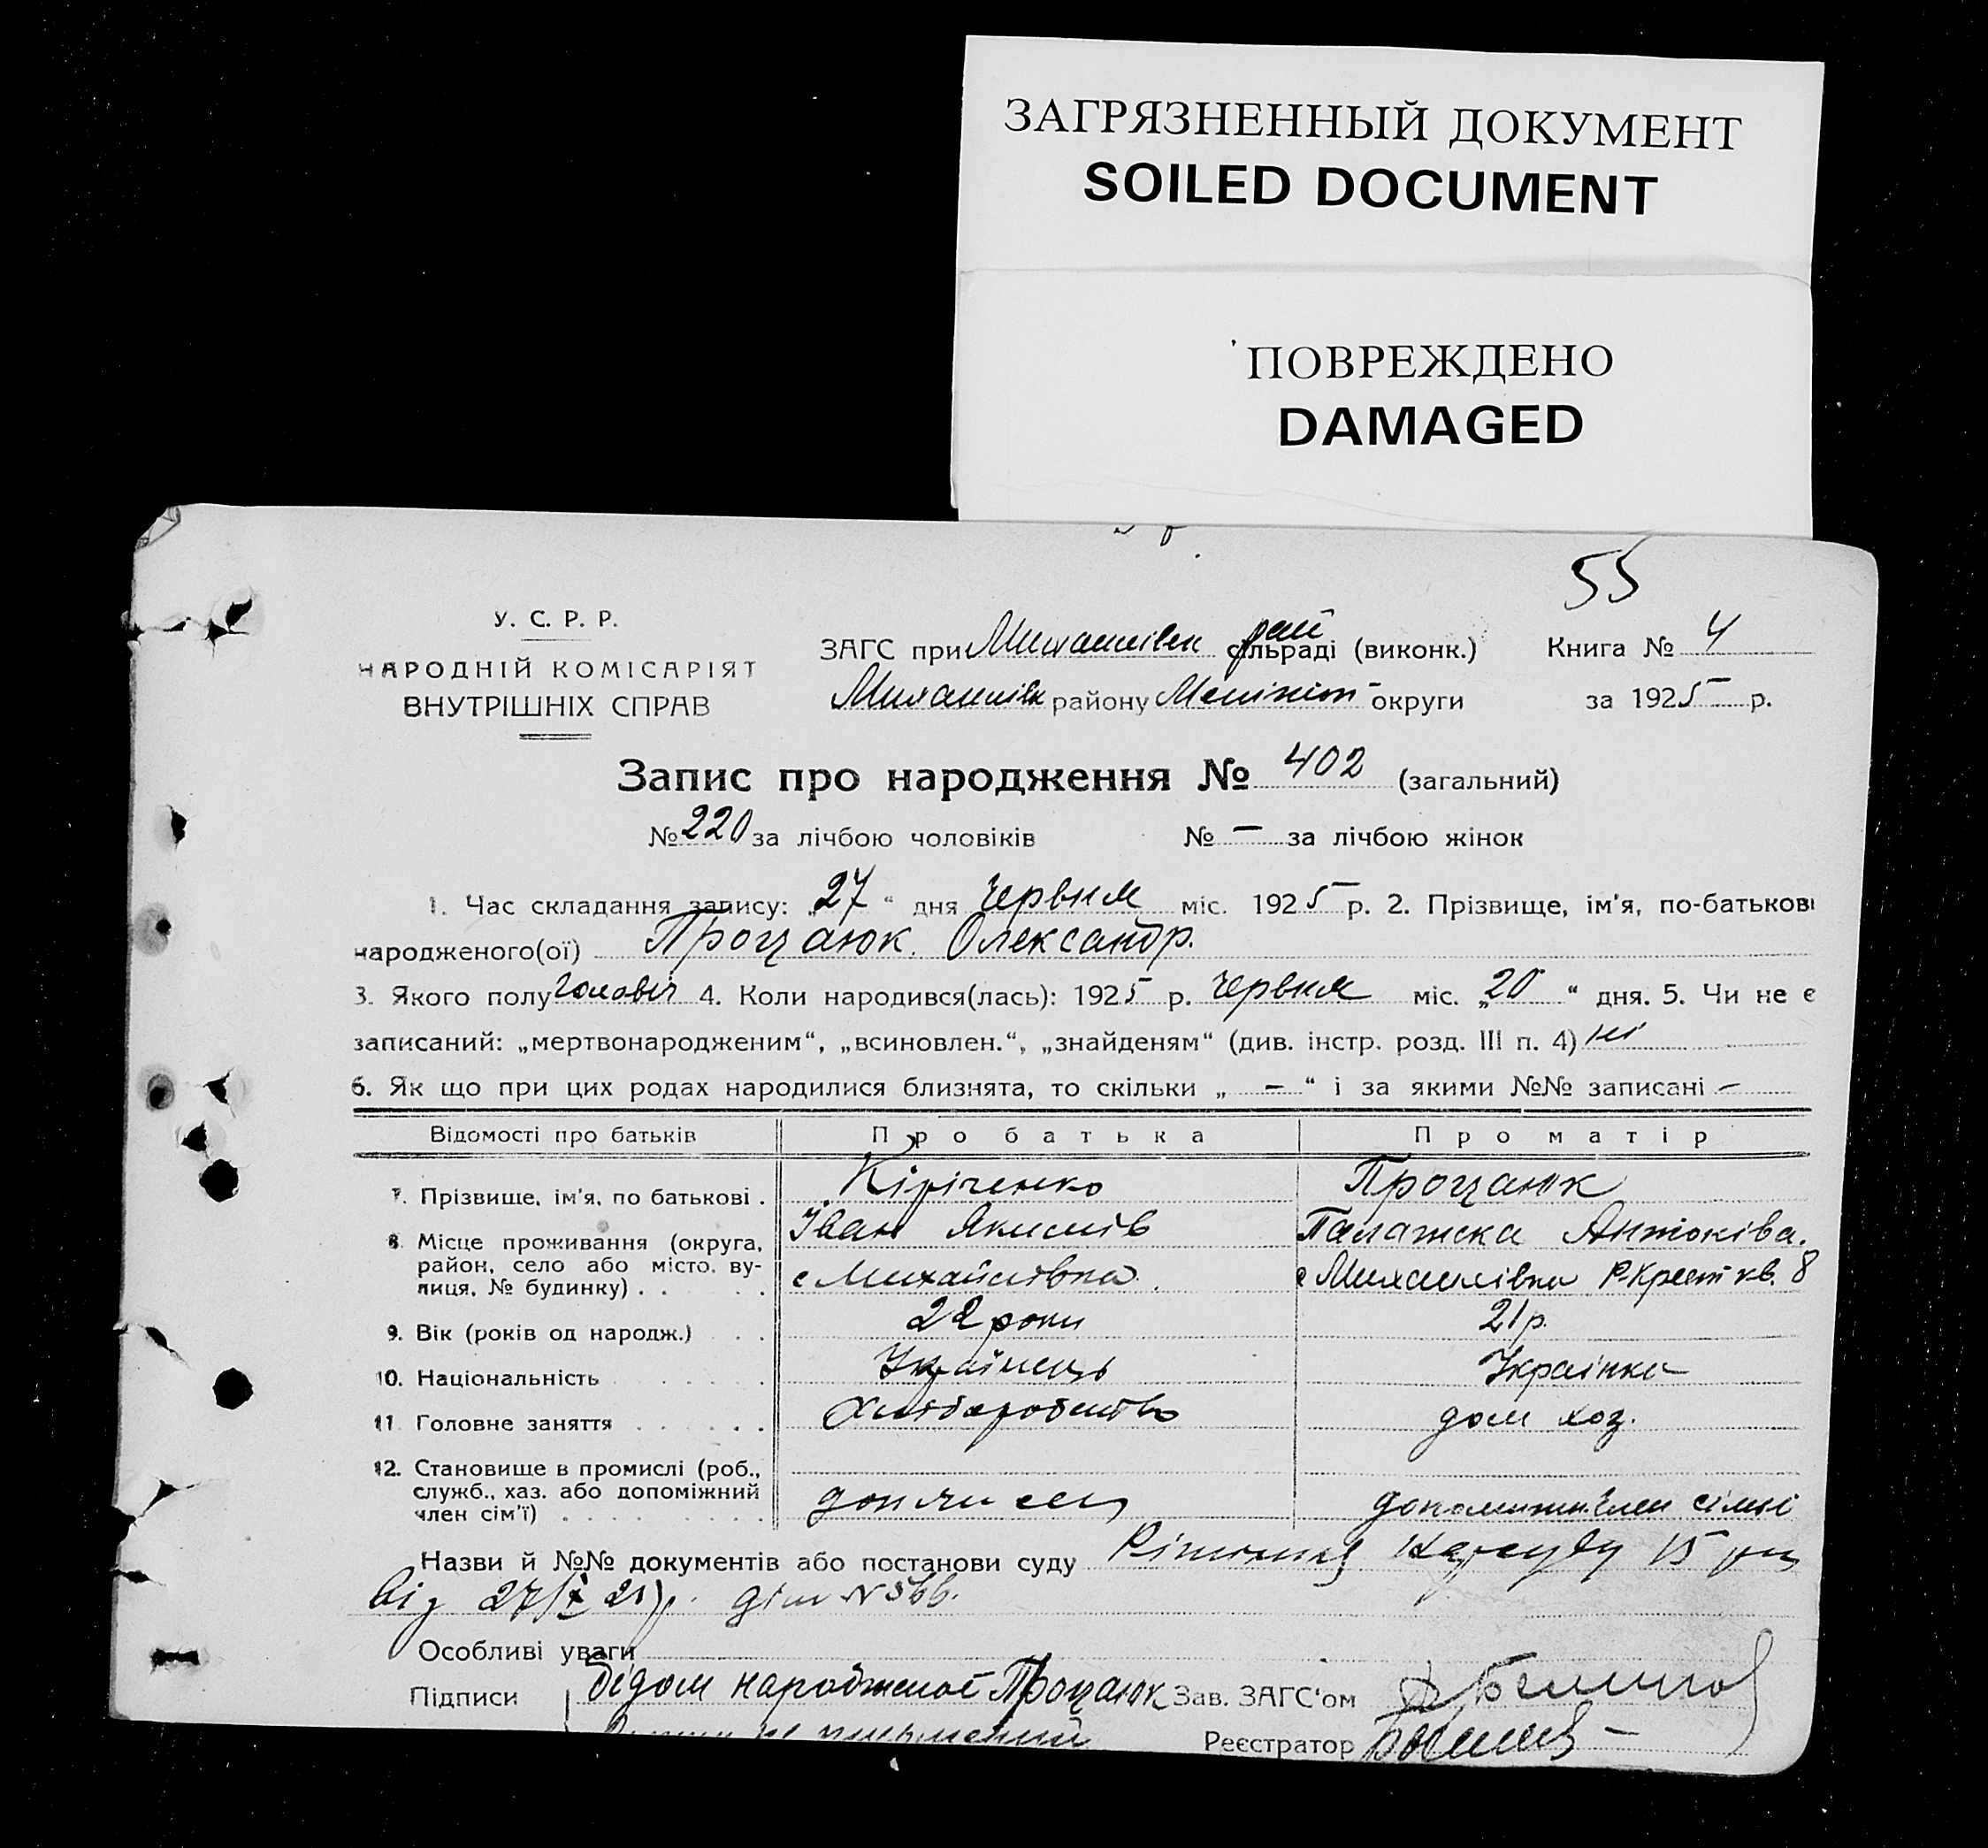 ЗАГРЯЗНЕННЫЙ ДОКУМЕНТ
SOILED DOCUMENT
ПОВРЕЖДЕНО
DAMAGED
55
У. С. Р. Р.
НАРОДНІЙ КОМІСАРІЯТ
ВНУТРІШНІХ СПРАВ
ЗАГС при Михайлівск рай сільраді (виконк.)
Книга № 4
Михайлівск району Меліпіт округи
за 1925 р.
Запис про народження № 402 (загальний)
№ 220 за лічбою чоловіків № — за лічбою жінок
1. Час складання запису: „27“ дня Червня міс. 1925 р. 2. Прізвище, ім'я, по-батькові
народженого(ої) Процаюк. Олександр.
3. Якого полу Чоловіч 4. Коли народився(лась): 1925 р. Червня міс. „20“ дня. 5. Чи не є
записаний: „мертвонародженим“, „всиновлен.“, „знайденям“ (див. інстр. розд. III п. 4) ні
6. Як що при цих родах народилися близнята, то скільки „ — “ і за якими №№ записані —
Відомості про батьків Про батька Про матір
7. Прізвище, ім'я, по батькові . Кіріченко Процаюк
Іван Якимів Палажка Антонівa.
8. Місце проживання (округа, район, село або місто, вулиця, № будинку) . . с Михайлівка. с Михайлівка Р-Крест кв. 8
9. Вік (років од народж.) . . 22 роки 21 р.
10. Національність Українець Українка
11. Головне заняття Хліборобство дом хоз.
12. Становище в промислі (роб.,
служб., хаз. або допоміжний
член сім'ї) допомижн член сімьі
Назви й №№ документів або постанови суду Нарсуду 15
від 27/X 25 р. діло №
Особливі уваги
Підписи народженої Процаюк Зав. ЗАГС'ом
Реєстратор